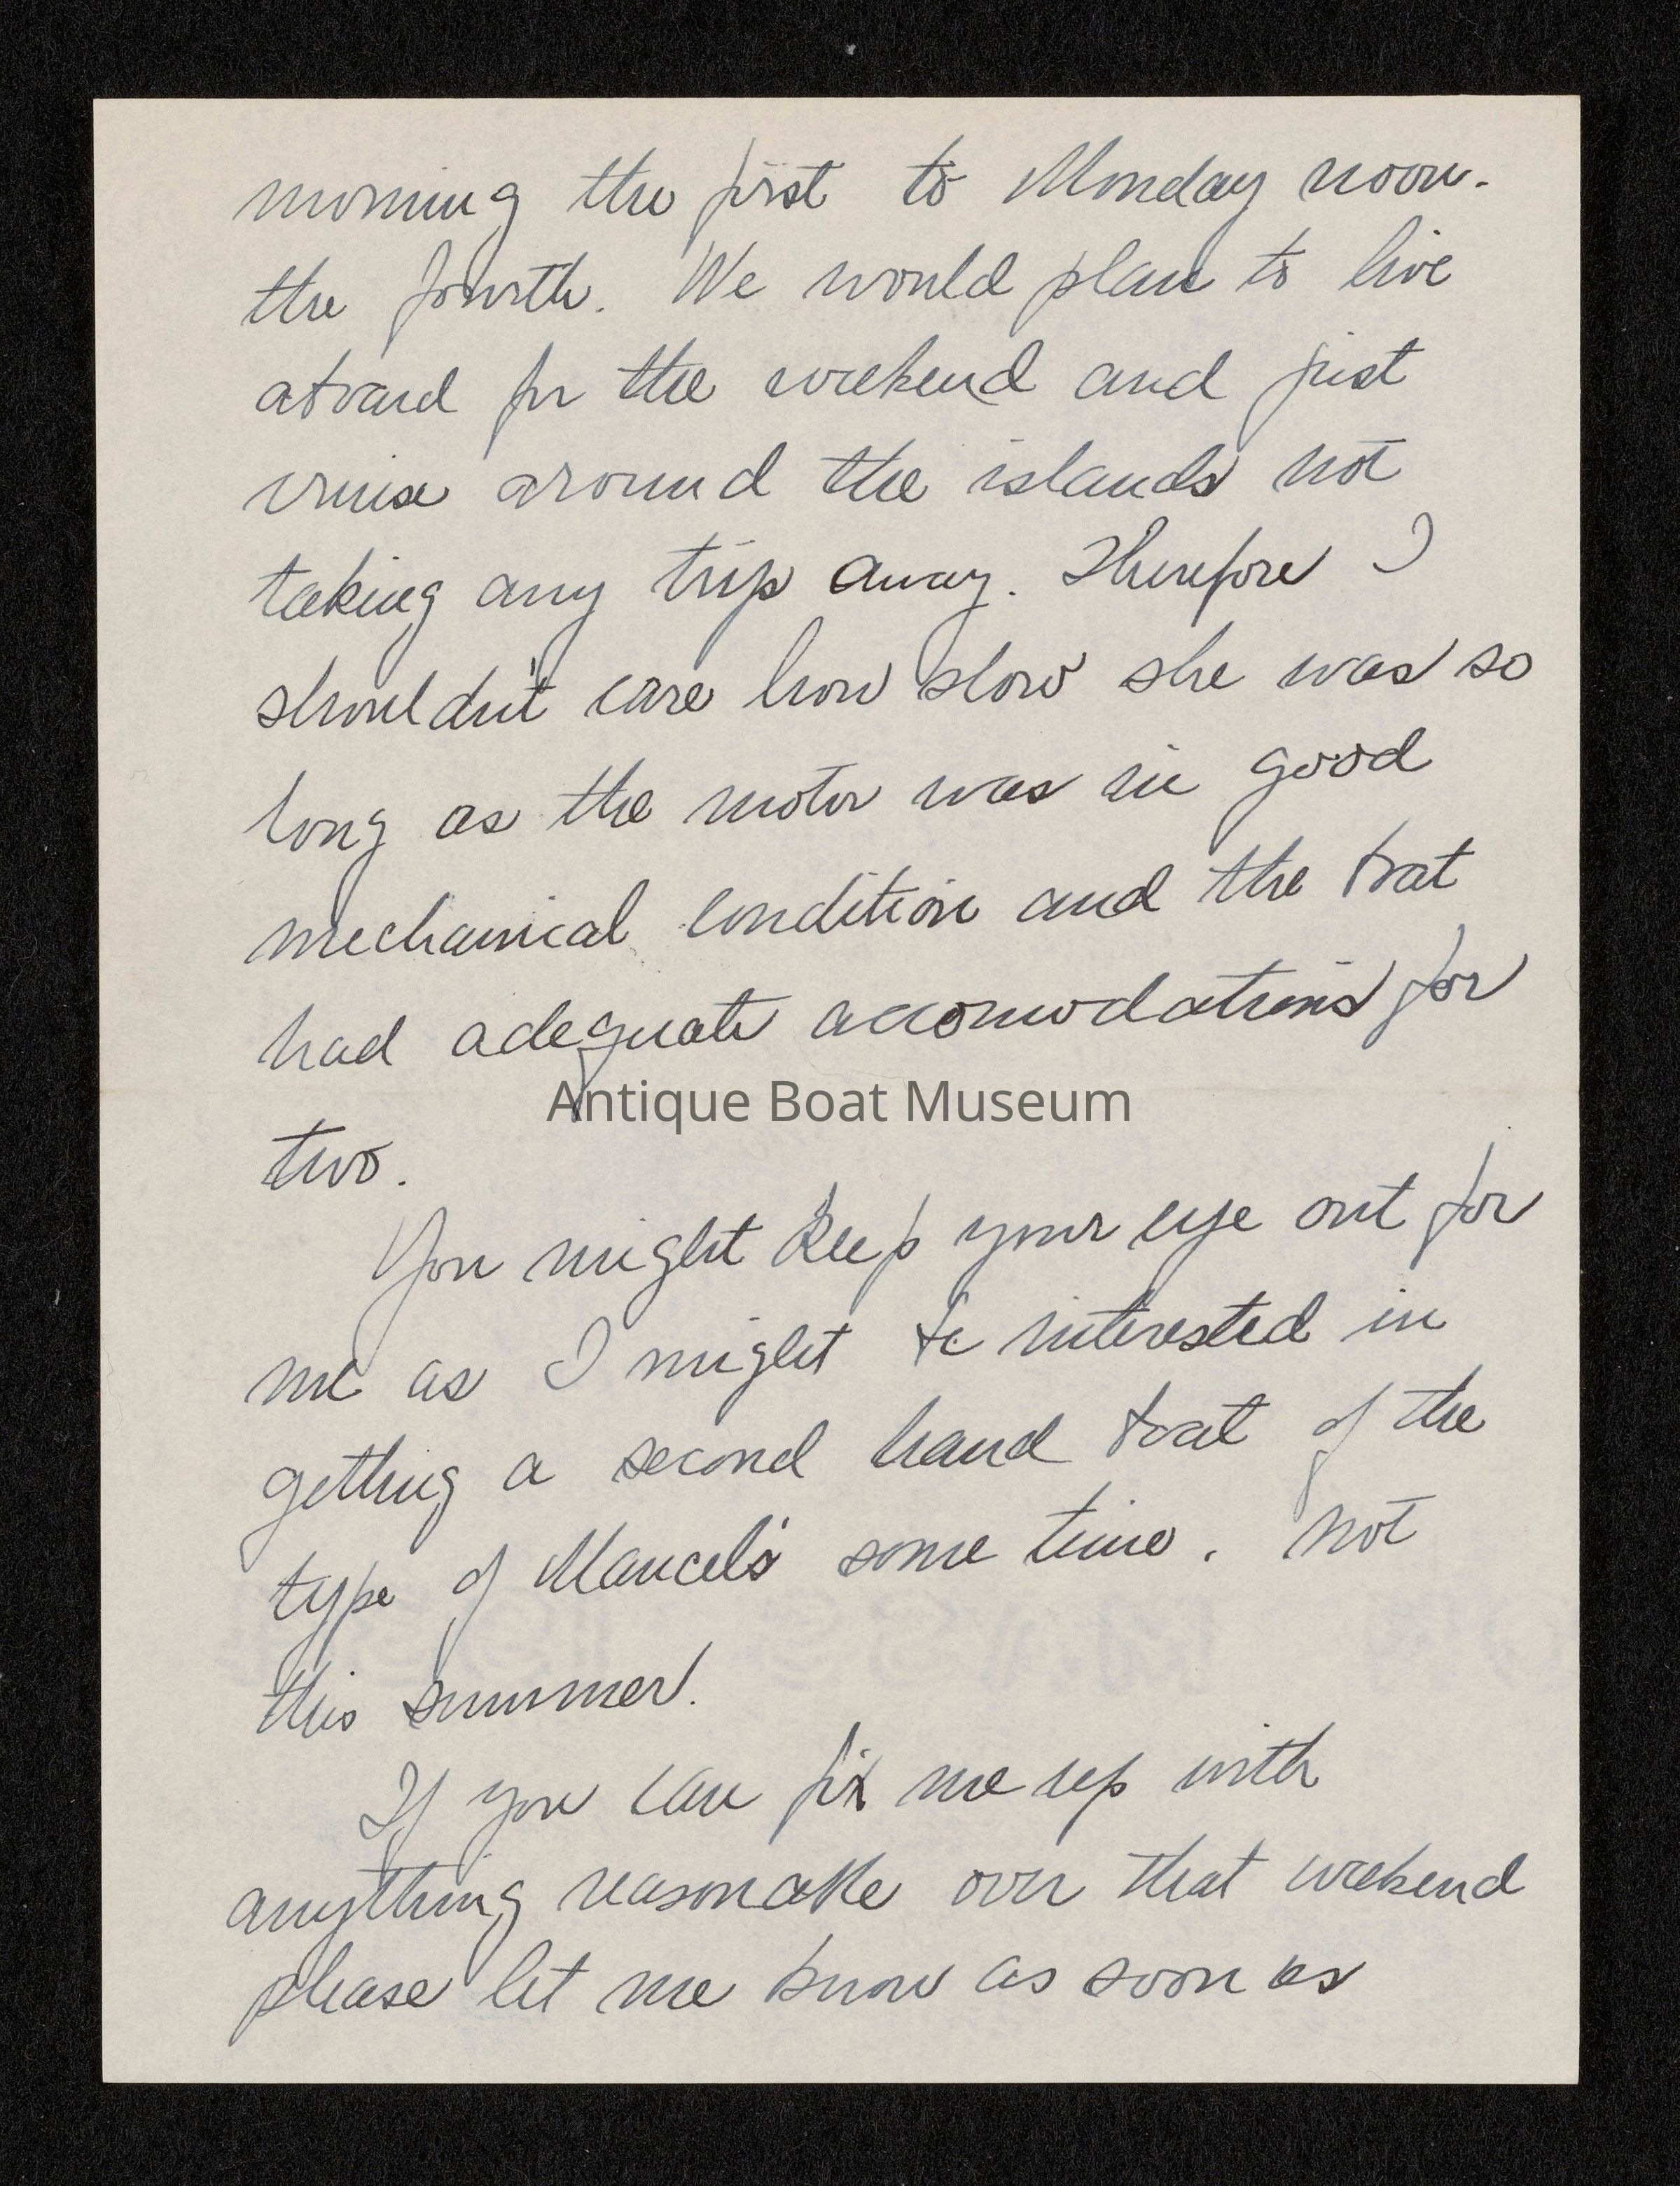 morning the first to Monday noon.
the fourth. We would plan to live
aboard for the weekend and just
cruise around the islands not
taking any trip away. Therefore I
shouldn't care how slow she was so
long as the motor was in good
mechanical condition and the boat
had adequate accomodations for
Antique Boat Museum
two.
You might keep your eye out for
me as I might be interested in
getting a second hand boat of the
type of Mancel's some time. not
this summer.
If you can fix me up with
anything reasonable over that weekend
please let me know as soon as